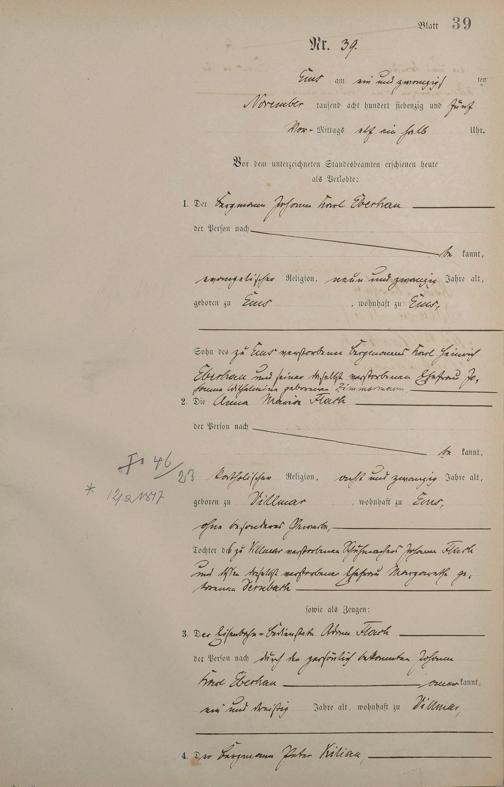 Blatt 39
Nr. 39.
Ems am ein und zwanzig ten
November tausend acht hundert siebenzig und fünf
Vor-Mittags elf ein halb Uhr.
Vor dem unterzeichneten Standesbeamten erschienen heute
als Verlobte:
1. Der Bergmann Johann Karl
der Person nach
be kannt,
evangelischer Religion, neun und zwanzig Jahre alt,
geboren zu Ems, wohnhaft zu Ems,
Sohn des zu Ems verstorbenen Bergmanns Karl Heinrich
und seiner daselbst verstorbenen Ehefrau Jo-
hanna Wilhelmine geborenen Zimmermann
2. Die Anna Maria Flach
der Person nach
be kannt,
katholischer Religion, acht und zwanzig Jahre alt,
geboren zu Villmar, wohnhaft zu Ems,
ohne besonderes Gewerbe,
Tochter des zu Villmar verstorbenen Johann Flach
und dessen daselbst verstorbener Ehefrau Margareth ge-
borenen
sowie als Zeugen:
3. Der Eisenbahn-Bedienstete Adam Flach
der Person nach durch den persönlich bekannten Johann
Karl kannt,
ein und dreißig Jahre alt, wohnhaft zu Villmar,
4. Der Bergmann Peter Kilian,